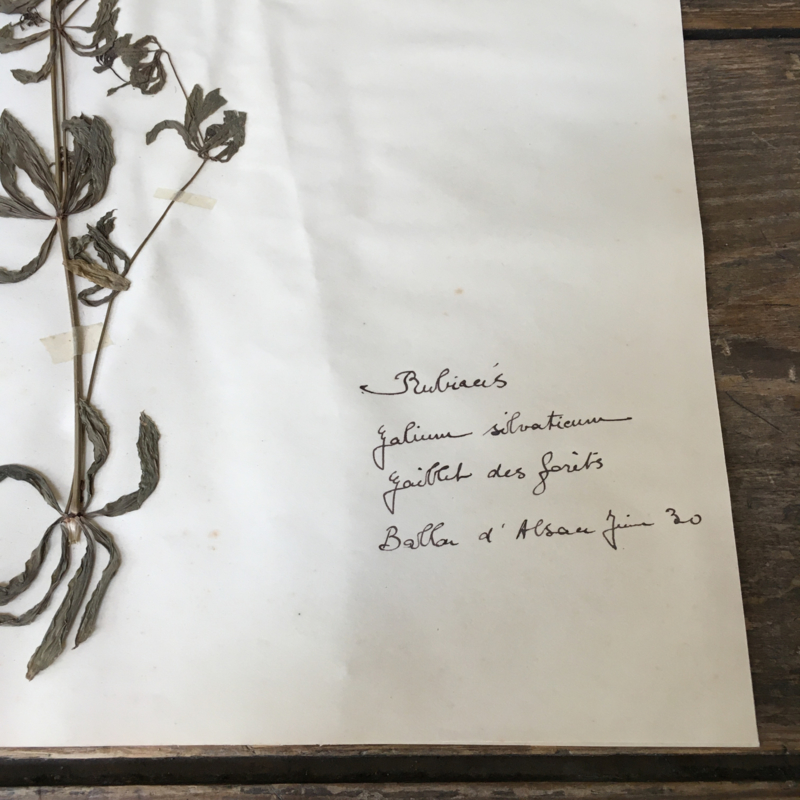 Rubiacés
Galium silvaticum
Gaillet des forêts
Ballon d'Alsace Juin 30